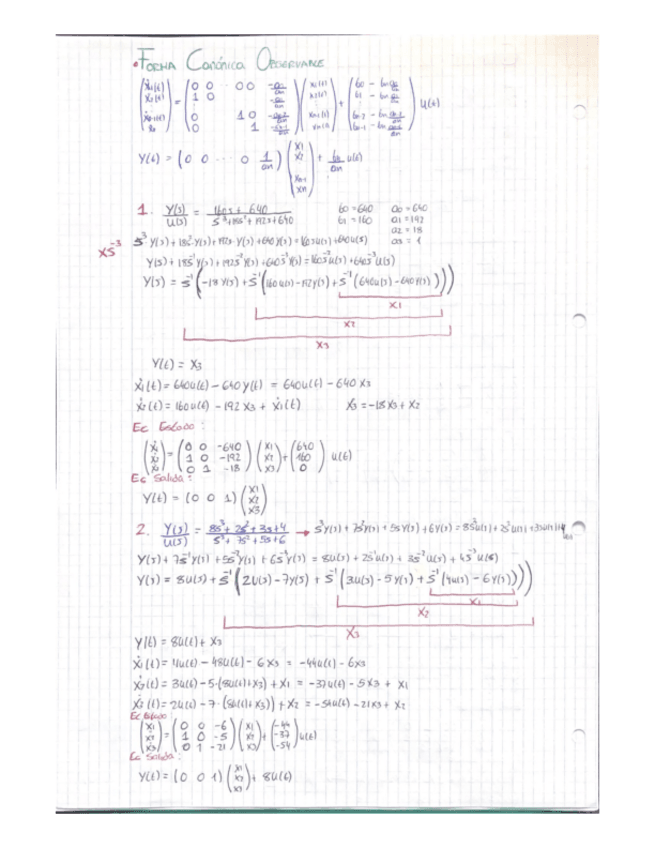 • Forma Canónica Observable
(ẋ1(t) ẋ2(t) ⋮ ẋn-1(t) ẋn) = (0 0 ⋯ 0 0 -a0/an; 1 0 -a1/an; 0 ⋮ 1 0 -an-2/an; 0 1 -an-1/an) (x1(t) x2(t) ⋮ xn-1(t) xn(t)) + (b0 - bn a0/an; b1 - bn a1/an; ⋮ bn-2 - bn an-2/an; bn-1 - bn an-1/an) u(t)
Y(t) = (0 0 ⋯ 0 1/an) (x1 x2 ⋮ xn-1 xn) + bn/an u(t)
1. Y(s)/U(s) = 160s + 640 / s³+18s²+192s+640 b0=640 a0=640
b1=160 a1=192
a2=18
a3=1
xs⁻³ s³Y(s)+18s²Y(s)+192s·Y(s)+640Y(s)=160su(s)+640u(s)
Y(s)+18s⁻¹Y(s)+192s⁻²Y(s)+640s⁻³Y(s)=160s⁻²u(s)+640s⁻³u(s)
Y(s) = s⁻¹(-18Y(s)+s⁻¹(160u(s)-192Y(s)+s⁻¹(640u(s)-640Y(s))))
x1
x2
x3
Y(t) = x3
ẋ1(t) = 640u(t) - 640y(t) = 640u(t) - 640x3
ẋ2(t) = 160u(t) - 192x3 + ẋ1(t) ẋ3 = -18x3 + x2
Ec Estado:
(ẋ1 ẋ2 ẋ3) = (0 0 -640; 1 0 -192; 0 1 -18) (x1 x2 x3) + (640 160 0) u(t)
Ec Salida:
Y(t) = (0 0 1) (x1 x2 x3)
2. Y(s)/U(s) = 8s³+2s²+3s+4 / s³+7s²+5s+6 → s³Y(s)+7s²Y(s)+5sY(s)+6Y(s)=8s³u(s)+2s²u(s)+3su(s)+4u(s)
Y(s)+7s⁻¹Y(s)+5s⁻²Y(s)+6s⁻³Y(s) = 8u(s)+2s⁻¹u(s)+3s⁻²u(s)+4s⁻³u(s)
Y(s) = 8u(s)+s⁻¹(2u(s)-7y(s)+s⁻¹(3u(s)-5y(s)+s⁻¹(4u(s)-6Y(s))))
x1
x2
x3
Y(t) = 8u(t)+x3
ẋ1(t) = 4u(t)-48u(t)-6x3 = -44u(t)-6x3
ẋ2(t) = 3u(t)-5·(8u(t)+x3)+x1 = -37u(t)-5x3 + x1
ẋ2(t) = 2u(t)-7·(8u(t)+x3))+x2 = -54u(t)-21x3+x2
Ec Estado:
(ẋ1 ẋ2 ẋ3) = (0 0 -6; 1 0 -5; 0 1 -21) (x1 x2 x3) + (-44 -37 -54) u(t)
Ec Salida:
Y(t) = (0 0 1) (x1 x2 x3) + 8u(t)